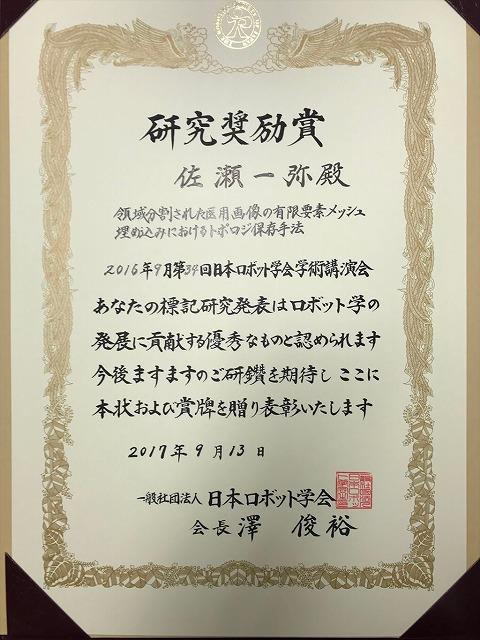 研究奨励賞
佐瀬一弥殿
領域分割された医用画像の有限要素メッシュ
埋め込みにおけるトポロジ保存手法
2016年9月第34回日本ロボット学会学術講演会
あなたの標記研究発表はロボット学の
発展に貢献する優秀なものと認められます
今後ますますのご研鑽を期待し ここに
本状および賞牌を贈り表彰いたします
2017年9月13日
一般社団法人 日本ロボット学会
会長 澤 俊裕